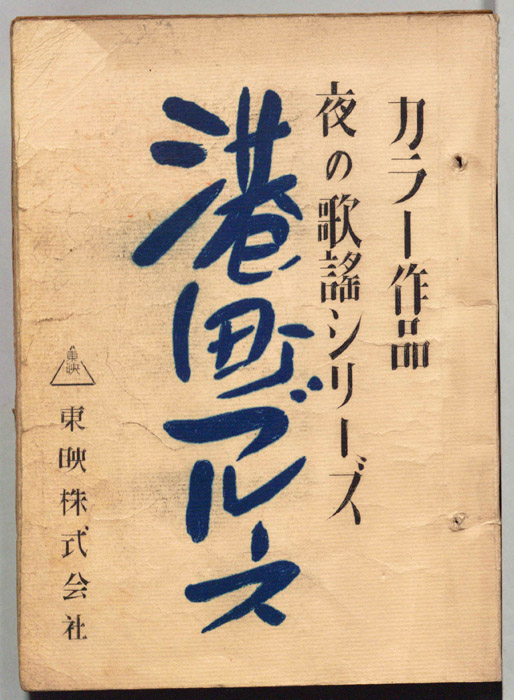 カラー作品
夜の歌謡シリーズ
港町ブルース
東映
東映株式会社